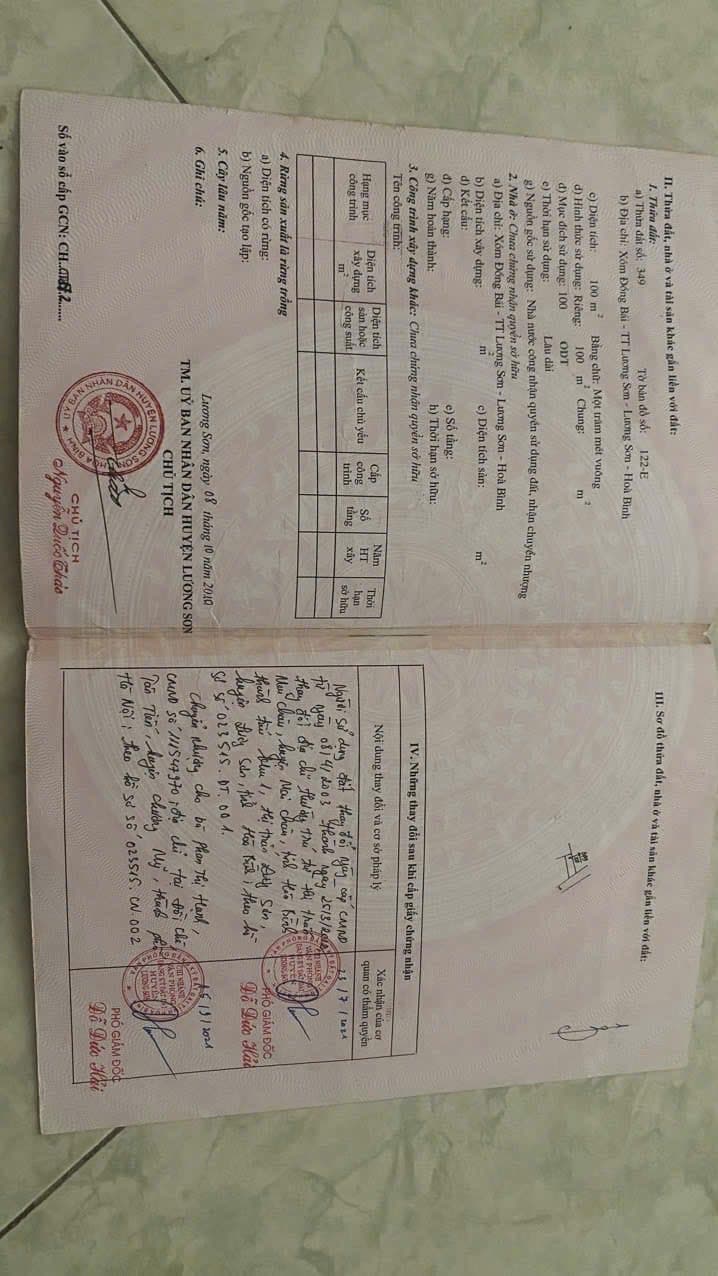 II. Thửa đất, nhà ở và tài sản khác gắn liền với đất:
1. Thửa đất:
a) Thửa đất số: 349 Tờ bản đồ số: 122-E
b) Địa chỉ: Xóm Đồng Bái - TT Lương Sơn - Lương Sơn - Hoà Bình
c) Diện tích: 100 m² Bằng chữ: Một trăm mét vuông
d) Hình thức sử dụng: Riêng: 100 m² Chung: m²
đ) Mục đích sử dụng: 100 ODT
e) Thời hạn sử dụng: Lâu dài
g) Nguồn gốc sử dụng: Nhà nước công nhận quyền sử dụng đất, nhận chuyển nhượng
2. Nhà ở: Chưa chứng nhận quyền sở hữu
a) Địa chỉ: Xóm Đồng Bái - TT Lương Sơn - Lương Sơn - Hoà Bình
b) Diện tích xây dựng: m² c) Diện tích sàn: m²
d) Kết cấu:
đ) Cấp hạng: e) Số tầng:
g) Năm hoàn thành: h) Thời hạn sở hữu:
3. Công trình xây dựng khác: Chưa chứng nhận quyền sở hữu
Tên công trình:
Hạng mục công trình
Diện tích xây dựng m²
Diện tích sàn hoặc công suất
Kết cấu chủ yếu
Cấp công trình
Số tầng
Năm HT xây
Thời hạn sở hữu
4. Rừng sản xuất là rừng trồng
a) Diện tích có rừng:
b) Nguồn gốc tạo lập:
5. Cây lâu năm:
6. Ghi chú:
Lương Sơn, ngày 08 tháng 10 năm 2010
TM. UỶ BAN NHÂN DÂN HUYỆN LƯƠNG SƠN
CHỦ TỊCH
ỦY BAN NHÂN DÂN HUYỆN LƯƠNG SƠN
HÒA BÌNH
CHỦ TỊCH
Nguyễn Quốc Thảo
Số vào sổ cấp GCN: CH
III. Sơ đồ thửa đất, nhà ở và tài sản khác gắn liền với đất:
349
IV. Những thay đổi sau khi cấp giấy chứng nhận
Nội dung thay đổi và cơ sở pháp lý
Xác nhận của cơ quan có thẩm quyền
Người sử dụng đất thay đổi ngày cấp CMND
từ ngày 08/4/2003 thành ngày 25/3/
thay đổi địa chỉ thường trú từ thị trấn
Mai Châu, huyện Mai Châu, tỉnh Hòa Bình
thành khu 1, thị trấn Sơn,
huyện Sơn, tỉnh Hòa Bình, theo hồ
sơ số 023515.ĐT.001.
23/7/2021
PHÓ GIÁM ĐỐC
Đỗ Đức Hải
Chuyển nhượng cho bà Phan Thị Hạnh,
CMND số 111547970, địa chỉ tại Đội
Tân Tiến, huyện Chương Mỹ, thành phố
Hà Nội; theo hồ sơ số 023515.CN.002
2021
PHÓ GIÁM ĐỐC
Đỗ Đức Hải